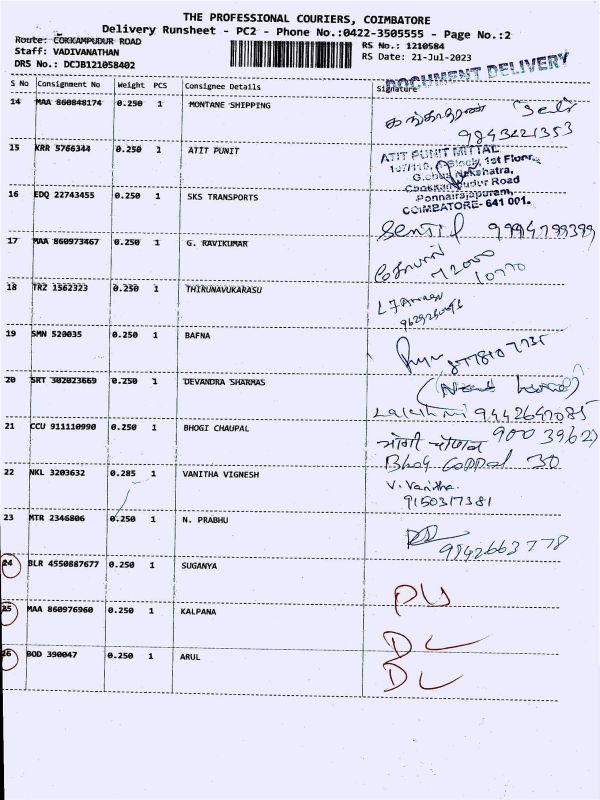 THE PROFESSIONAL COURIERS, COIMBATORE
Delivery Runsheet - PC2 - Phone No.:0422-3505555 - Page No.:2
Route: COKKAMPUDUR ROAD
RS No.: 1210584
Staff: VADIVANATHAN
RS Date: 21-Jul-2023
DRS No.: DCJB121058402
DOCUMENT DELIVERY
S No Consignment No Weight PCS Consignee Details Signature
14 MAA 860848174 0.250 1 MONTANE SHIPPING
9843221353
15 KRR 5766344 0.250 1 ATIT PUNIT
ATIT PUNIT MITTAL
1st Floor,
Road
Ponnairajapuram,
COIMBATORE- 641 001.
16 EDQ 22743455 0.250 1 SKS TRANSPORTS
9994799399
17 MAA 860973467 0.250 1 G. RAVIKUMAR
18 TRZ 1562323 0.250 1 THIRUNAVUKARASU
19 SMN 520035 0.250 1 BAFNA
20 SRT 302023669 0.250 1 DEVANDRA SHARMAS
Lalchmi 9442647085
21 CCU 911110990 0.250 1 BHOGI CHAUPAL
900 3962
30
22 NKL 3203632 0.285 1 VANITHA VIGNESH
V. Vanitha.
9150317381
23 MTR 2346806 0.250 1 N. PRABHU
9942663778
24 BLR 4550887677 0.250 1 SUGANYA
25 MAA 860976960 0.250 1 KALPANA
DL
26 BOD 390047 0.250 1 ARUL
DL